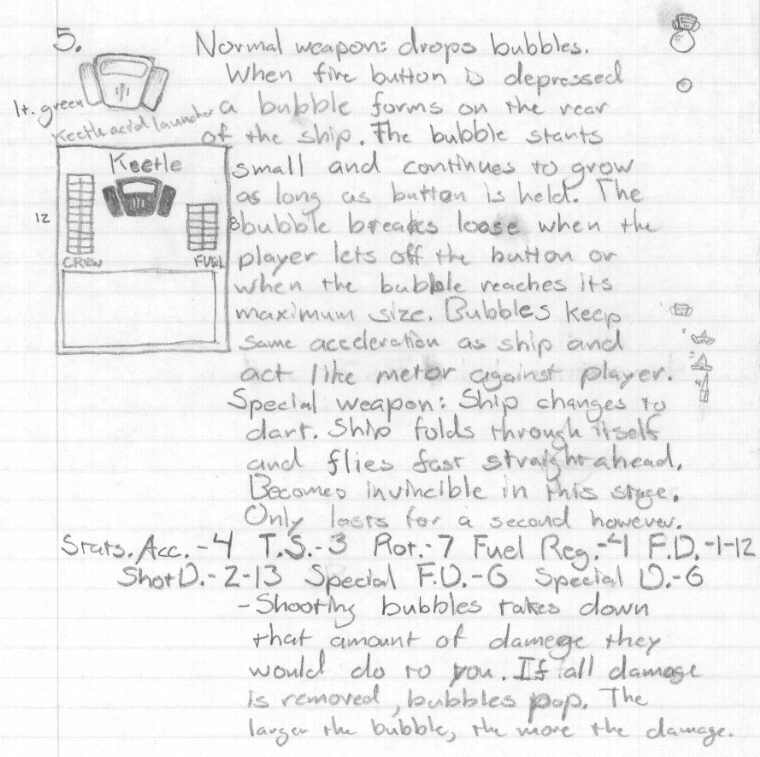 5. Normal weapon: drops bubbles.
When fire button is depressed
lt. green a bubble forms on the rear
Keetle acid launcher
of the ship. The bubble starts
Keetle
small and continues to grow
as long as button is held. The
12
8
bubble breakes loose when the
player lets off the button or
CREW FUEL
when the bubble reaches its
maximum size. Bubbles keep
same acceleration as ship and
act like metor against player.
Special weapon: Ship changes to
dart. Ship folds through itself
and flies fast straight ahead.
Becomes invincible in this stage.
Only lasts for a second however.
Stats. Acc.-4 T.S.-3 Rot.-7 Fuel Reg.-4 F.D.-1-12
Shot D.-2-13 Special F.D.-6 Special D.-6
-Shooting bubbles takes down
that amount of damege they
would do to you. If all damage
is removed, bubbles pop. The
larger the bubble, the more the damage.